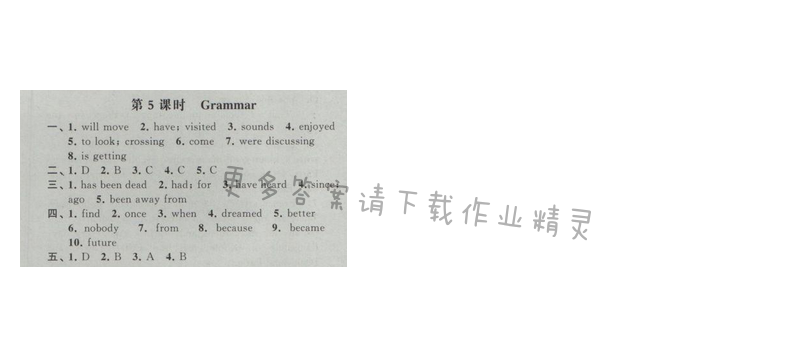 第 5 课时 Grammar
一、1. will move 2. have; visited 3. sounds 4. enjoyed
5. to look; crossing 6. come 7. were discussing
8. is getting
二、1. D 2. B 3. C 4. C 5. C
三、1. has been dead 2. had; for 3. have heard 4. since;
ago 5. been away from
四、1. find 2. once 3. when 4. dreamed 5. better
6. nobody 7. from 8. because 9. became
10. future
五、1. D 2. B 3. A 4. B
更多答案请下载作业精灵